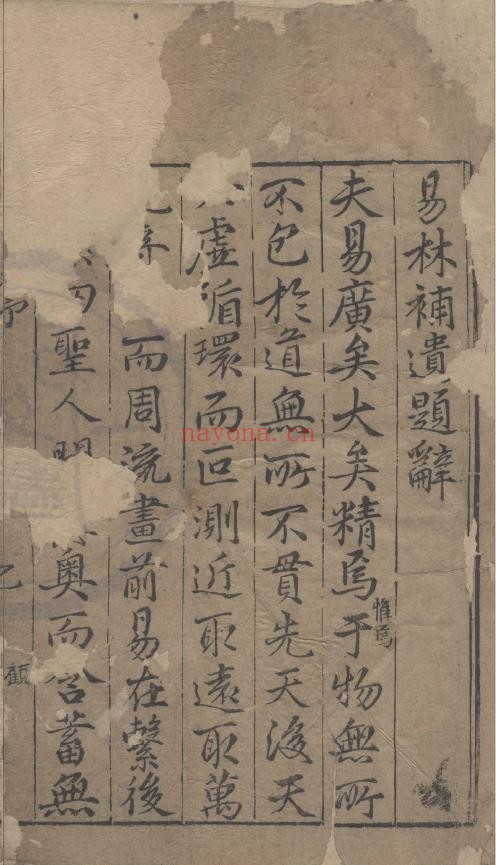 易林補遺題辭
夫易廣矣大矣精焉于物無所
惟焉
不包於道無所不貫先天後天
虛循環而叵測近取遠取萬
而周流畫前易在繫後
聖人奧而含蓄無
顧
nayona.cn